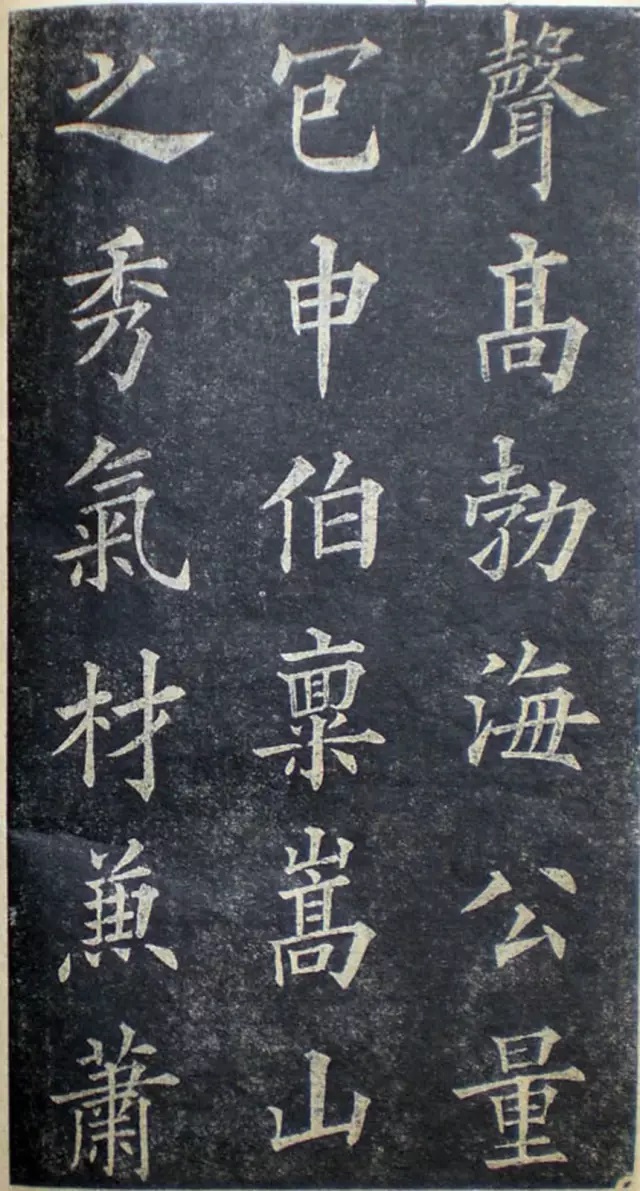 聲髙勃海公量
包申伯稟嵩山
之秀氣材兼蕭